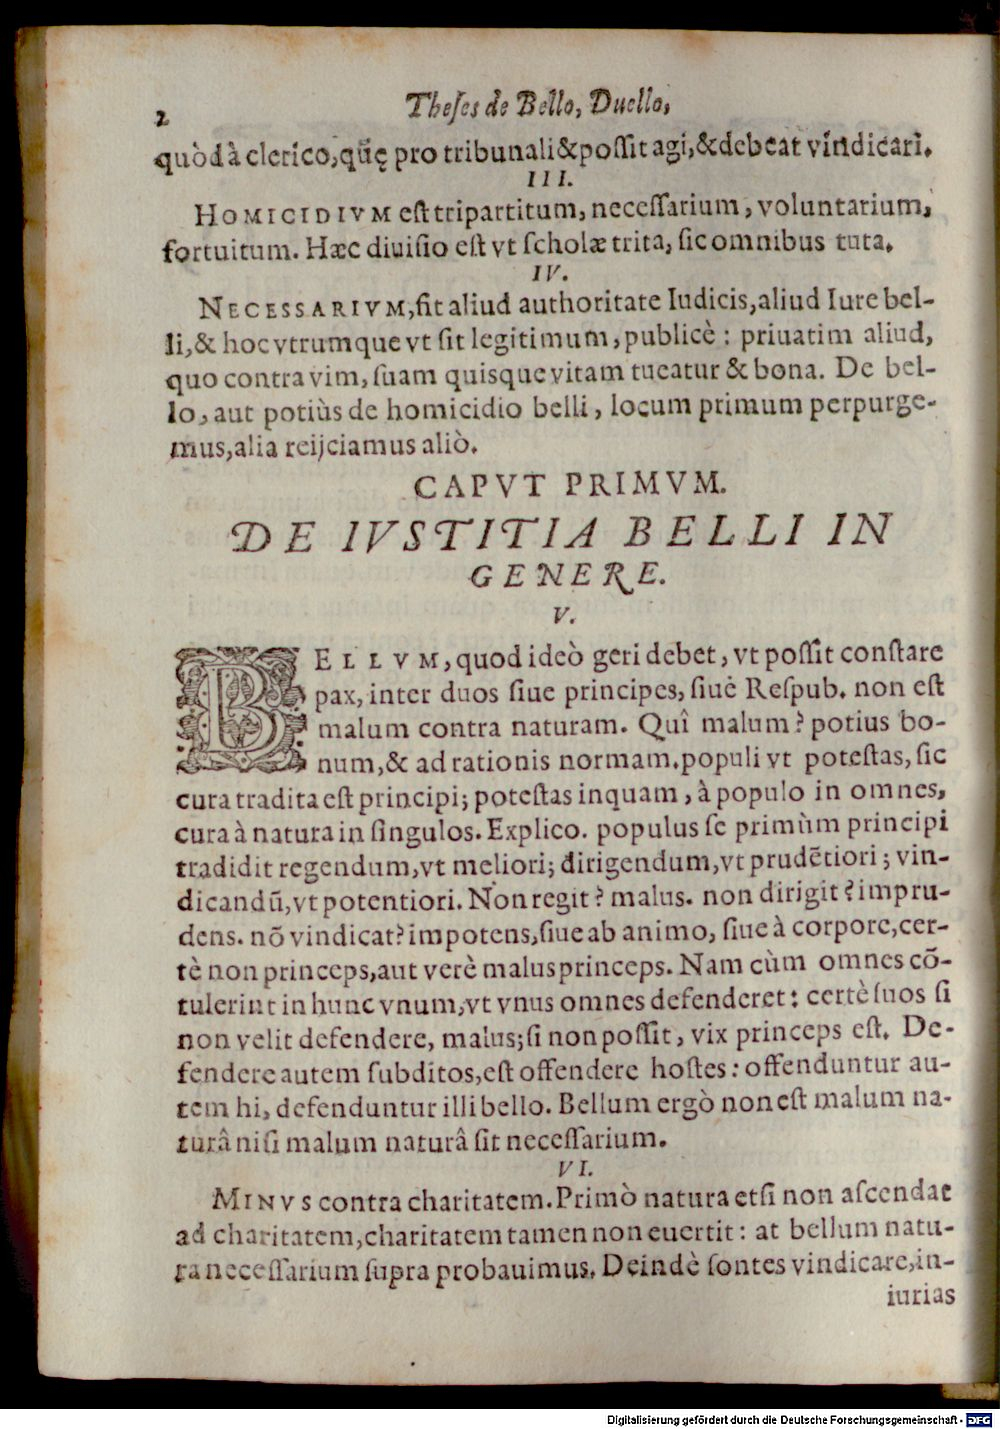 2 Theſes de Bello, Duello,
quòd à clerico, qūę pro tribunali & poſſit agi, & debeat vindicari.
III.
HOMICIDIVM eſt tripartitum, neceſſarium, voluntarium,
fortuitum. Hæc diuiſio eſt vt ſcholæ trita, ſic omnibus tuta.
IV.
NECESSARIVM, fit aliud authoritate Iudicis, aliud Iure bel-
li, & hoc vtrumque vt ſit legitimum, publicè : priuatim aliud,
quo contra vim, ſuam quisque vitam tueatur & bona. De bel-
lo, aut potiùs de homicidio belli, locum primum perpurge-
mus, alia reijciamus aliò.
CAPVT PRIMVM.
DE IVSTITIA BELLI IN
GENERE.
V.
BELLVM, quod ideò geri debet, vt poſſit conſtare
pax, inter duos ſiue principes, ſiue Reſpub. non eſt
malum contra naturam. Quî malum? potius bo-
num, & ad rationis normam. populi vt poteſtas, ſic
cura tradita eſt principi; poteſtas inquam, à populo in omnes,
cura à natura in ſingulos. Explico. populus ſe primùm principi
tradidit regendum, vt meliori; dirigendum, vt prudētiori; vin-
dicandū, vt potentiori. Non regit? malus. non dirigit? impru-
dens. nō vindicat? impotens, ſiue ab animo, ſiue à corpore, cer-
tè non princeps, aut verè malus princeps. Nam cùm omnes cō-
tulerint in hunc vnum, vt vnus omnes defenderet : certè ſuos ſi
non velit defendere, malus; ſi non poſſit, vix princeps eſt. De-
fendere autem ſubditos, eſt offendere hoſtes : offenduntur au-
tem hi, defenduntur illi bello. Bellum ergò non eſt malum na-
turâ niſi malum naturâ ſit neceſſarium.
VI.
MINVS contra charitatem. Primò natura etſi non aſcendat
ad charitatem, charitatem tamen non euertit : at bellum natu-
ra neceſſarium ſupra probauimus. Deindè ſontes vindicare, in-
iurias
Digitalisierung gefördert durch die Deutsche Forschungsgemeinschaft - DFG